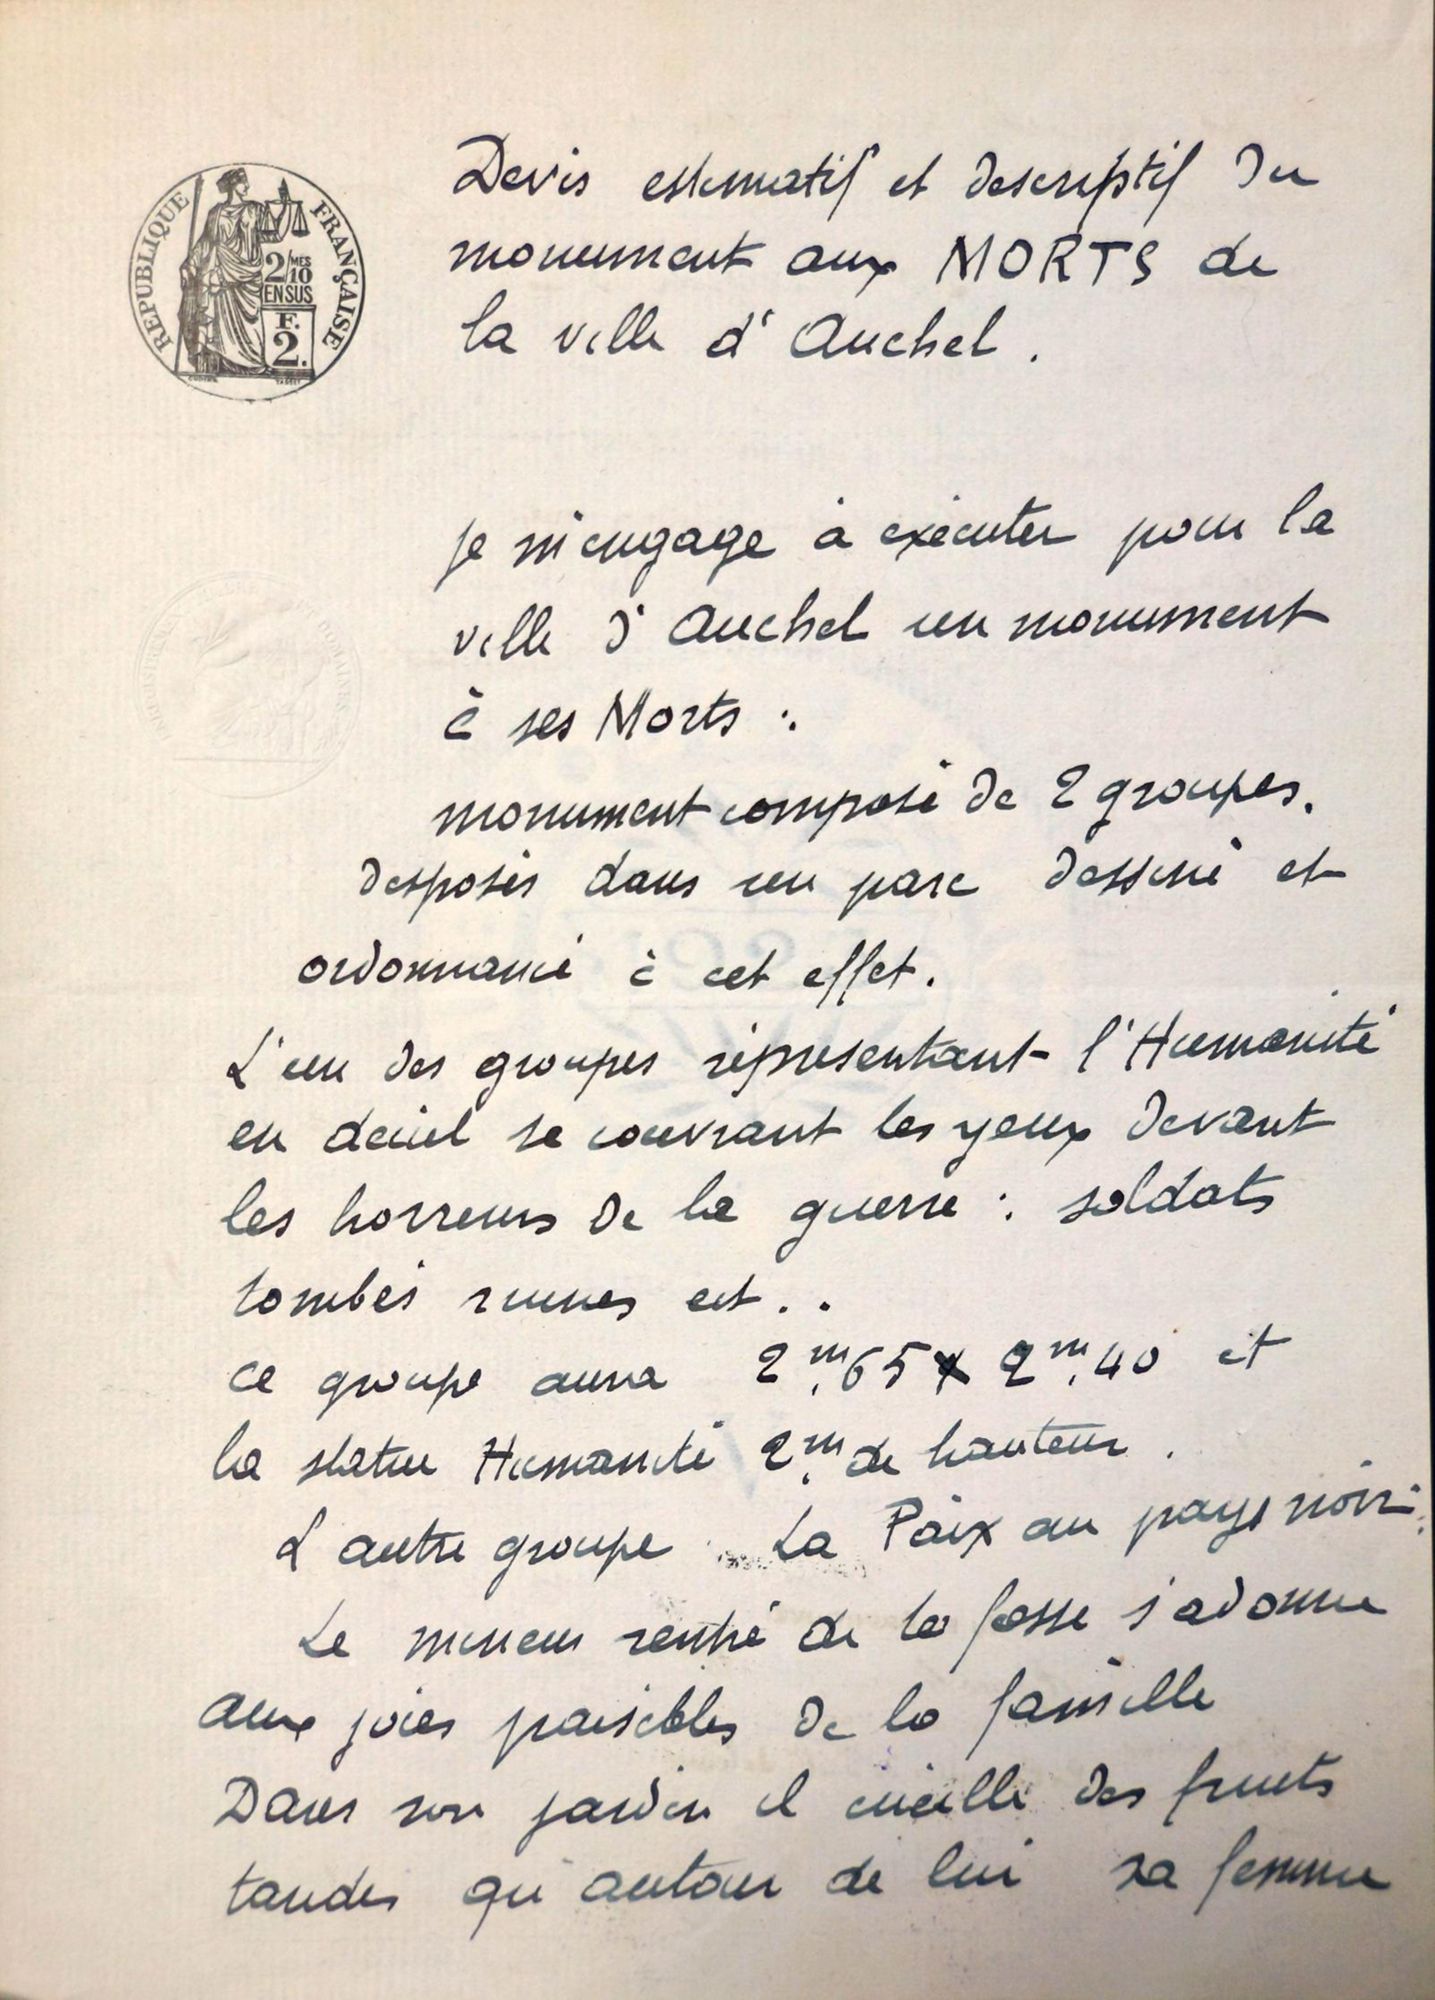 RÉPUBLIQUE FRANÇAISE
2/MES
10
EN SUS
F.
2.
Devis estimatif et descriptif du
monument aux MORTS de
la ville d'Auchel.
je m'engage à exécuter pour la
ville d'Auchel un monument
à ses Morts :
monument composé de 2 groupes.
disposés dans un parc dessiné et
ordonnancé à cet effet.
L'un des groupes représentant l'Humanité
en deuil se couvrant les yeux devant
les horreurs de la guerre : soldats
tombés ruines ect..
ce groupe aura 2m.65 x 2m.40 et
la statue Humanité 2m. de hauteur.
L'autre groupe La Paix au pays noir.
Le mineur rentré de la fosse s'adonne
aux joies paisibles de la famille
Dans son jardin il cueille des fruits
tandis qu'autour de lui sa femme